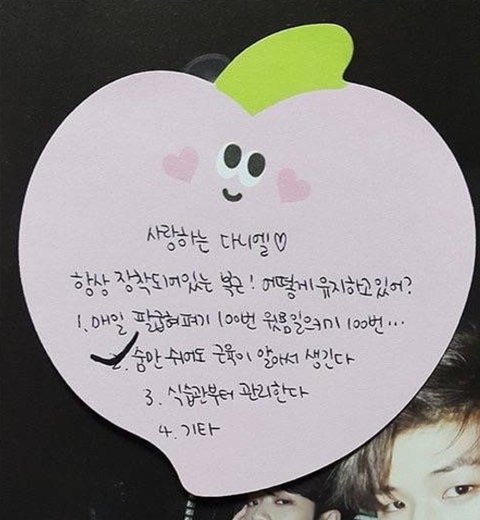 사랑하는 다니엘♡
항상 장착되어있는 복근! 어떻게 유지하고있어?
1. 매일 팔굽혀펴기 100번 윗몸일으키기 100번...
2. 숨만 쉬어도 근육이 알아서 생긴다
3. 식습관부터 관리한다
4. 기타